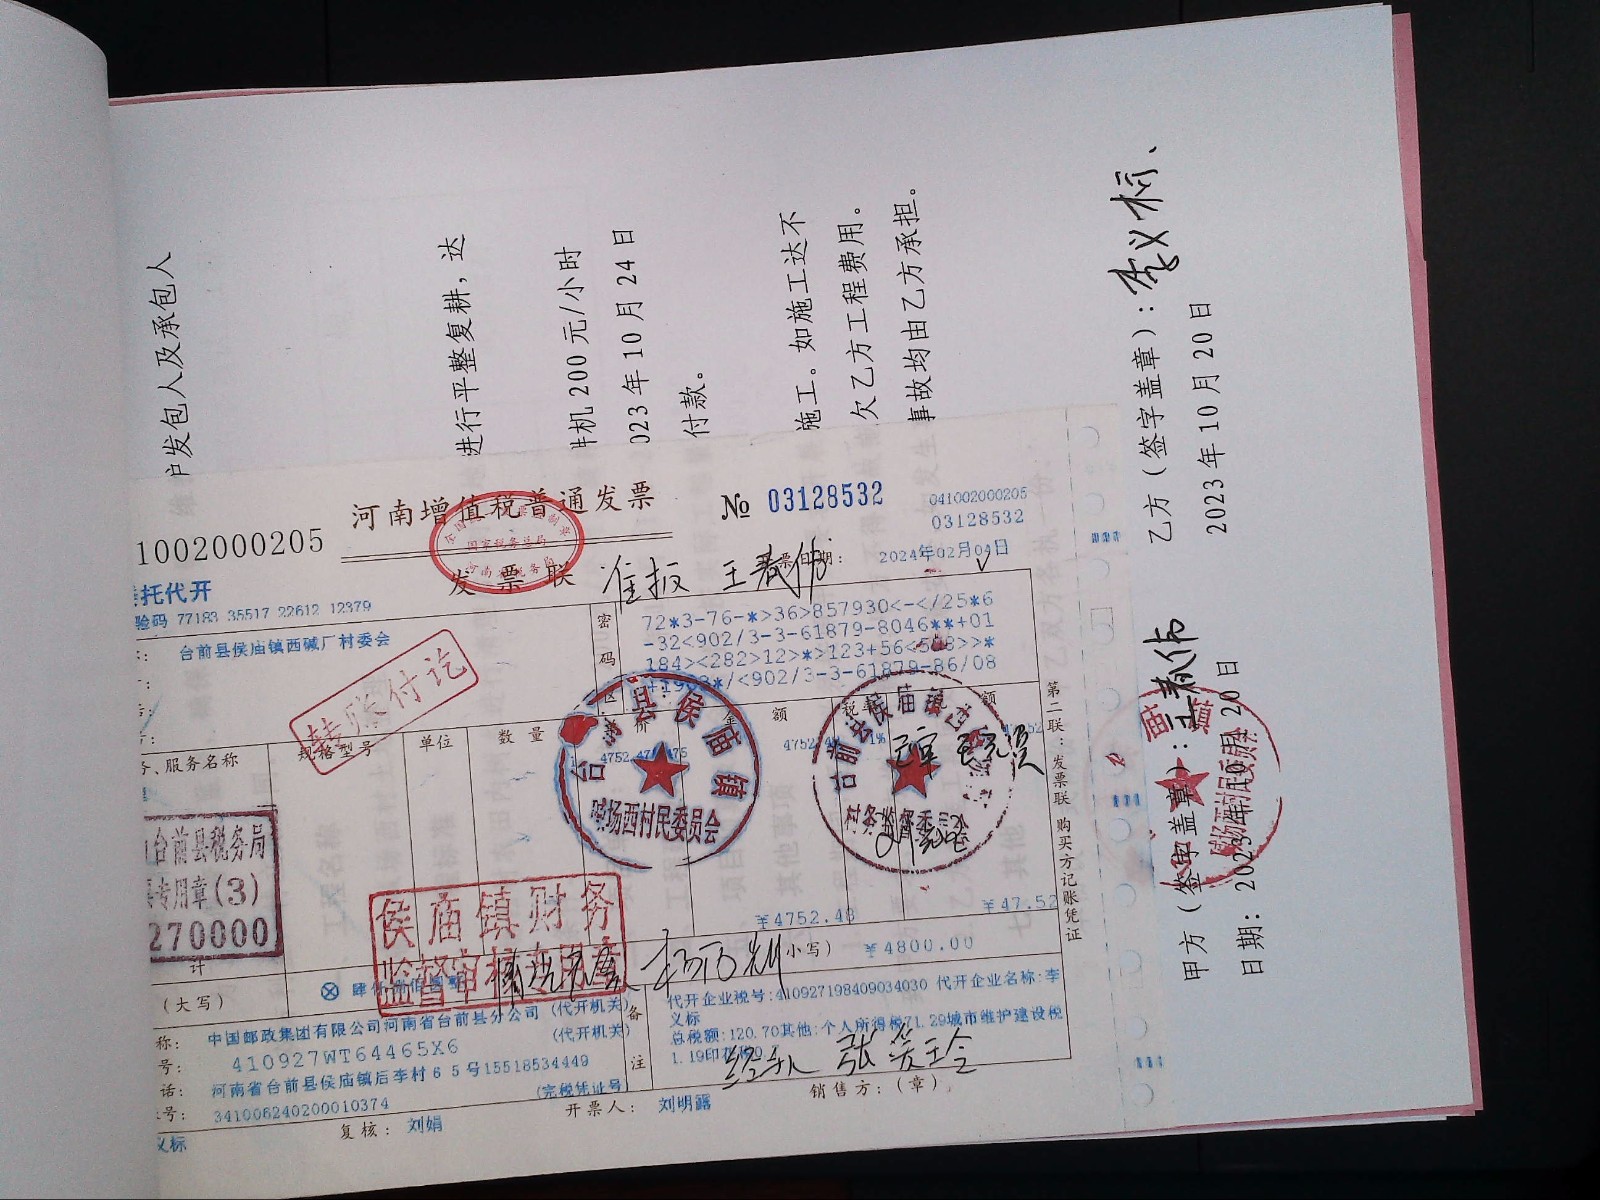 户发包人及承包人
进行平整复耕，达
耕机 200 元/小时
023 年 10 月 24 日
付款。
施工。如施工达不
欠乙方工程费用。
事故均由乙方承担。
乙方（签字盖章）：李义标、
2023 年 10 月 20 日
甲方（签字盖章）：王春伟
日期：2023年10月 20 日
1002000205
河南增值税普通发票
№ 03128532
041002000205
03128532
发 票 联
准报 王春伟
开票日期： 2024年02月04日
委托代开
验码 77183 35517 22612 12379
台前县侯庙镇西碱厂村委会
密码区
72*3-76-*>36>857930<-</25*6
-32<902/3-3-61879-8046**+01
184><282>12>*>123+56<508>>*
/<902/3-3-61879-86/08
转账付讫
务、服务名称
规格型号
单位
数 量
单 价
金 额
税率
税 额
1%
台前县税务局
专用章(3)
270000
台前县侯庙镇
碱场西村民委员会
台前县侯庙镇西
村务监督委员会
侯庙镇财务
监督审核专用章
¥4752.48
¥47.52
计
（大写）
⊗ 肆仟捌佰圆整
（小写）
¥4800.00
第二联：发票联 购买方记账凭证
称： 中国邮政集团有限公司河南省台前县分公司 (代开机关)
号： 410927WT64465X6 (代开机关)
话： 河南省台前县侯庙镇后李村６５号15518534449
号： 341006240200010374 (完税凭证号)
备注
代开企业税号:410927198409034030 代开企业名称:李
义标
总税额:120.70其他:个人所得税71.29城市维护建设税
1.19印花税0.7
经手人 张
义标
复核： 刘娟
开票人： 刘明露
销售方：（章）